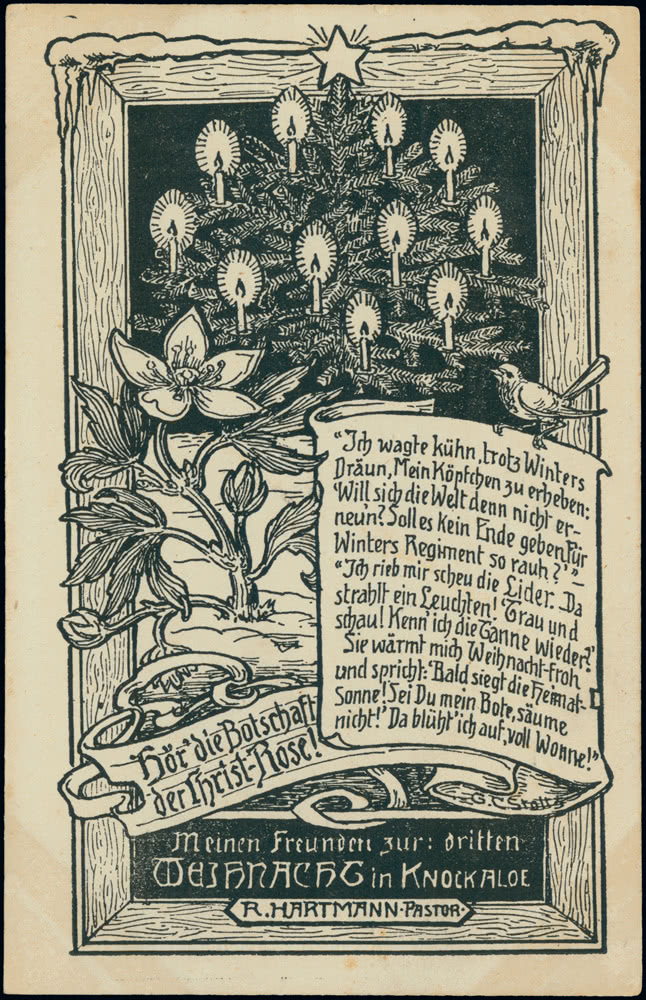 "Ich wagte kühn, trotz Winters
Dräun, Mein Köpfchen zu erheben:
'Will sich die Welt denn nicht er-
neu'n? Soll es kein Ende geben Für
Winters Regiment so rauh?'" –
"Ich rieb mir scheu die Lider. Da
strahlt ein Leuchten! Trau und
schau! Kenn' ich die Tanne wieder?
Sie wärmt mich Weihnacht-froh
und spricht: 'Bald siegt die Heimat-
Sonne! Sei Du mein Bote, säume
nicht!' Da blüht' ich auf, voll Wonne!"
G.C. Stoltz
Hör' die Botschaft
der Christ-Rose!
Meinen Freunden zur: dritten
WEIHNACHT in KNOCKALOE
R. HARTMANN·PASTOR·